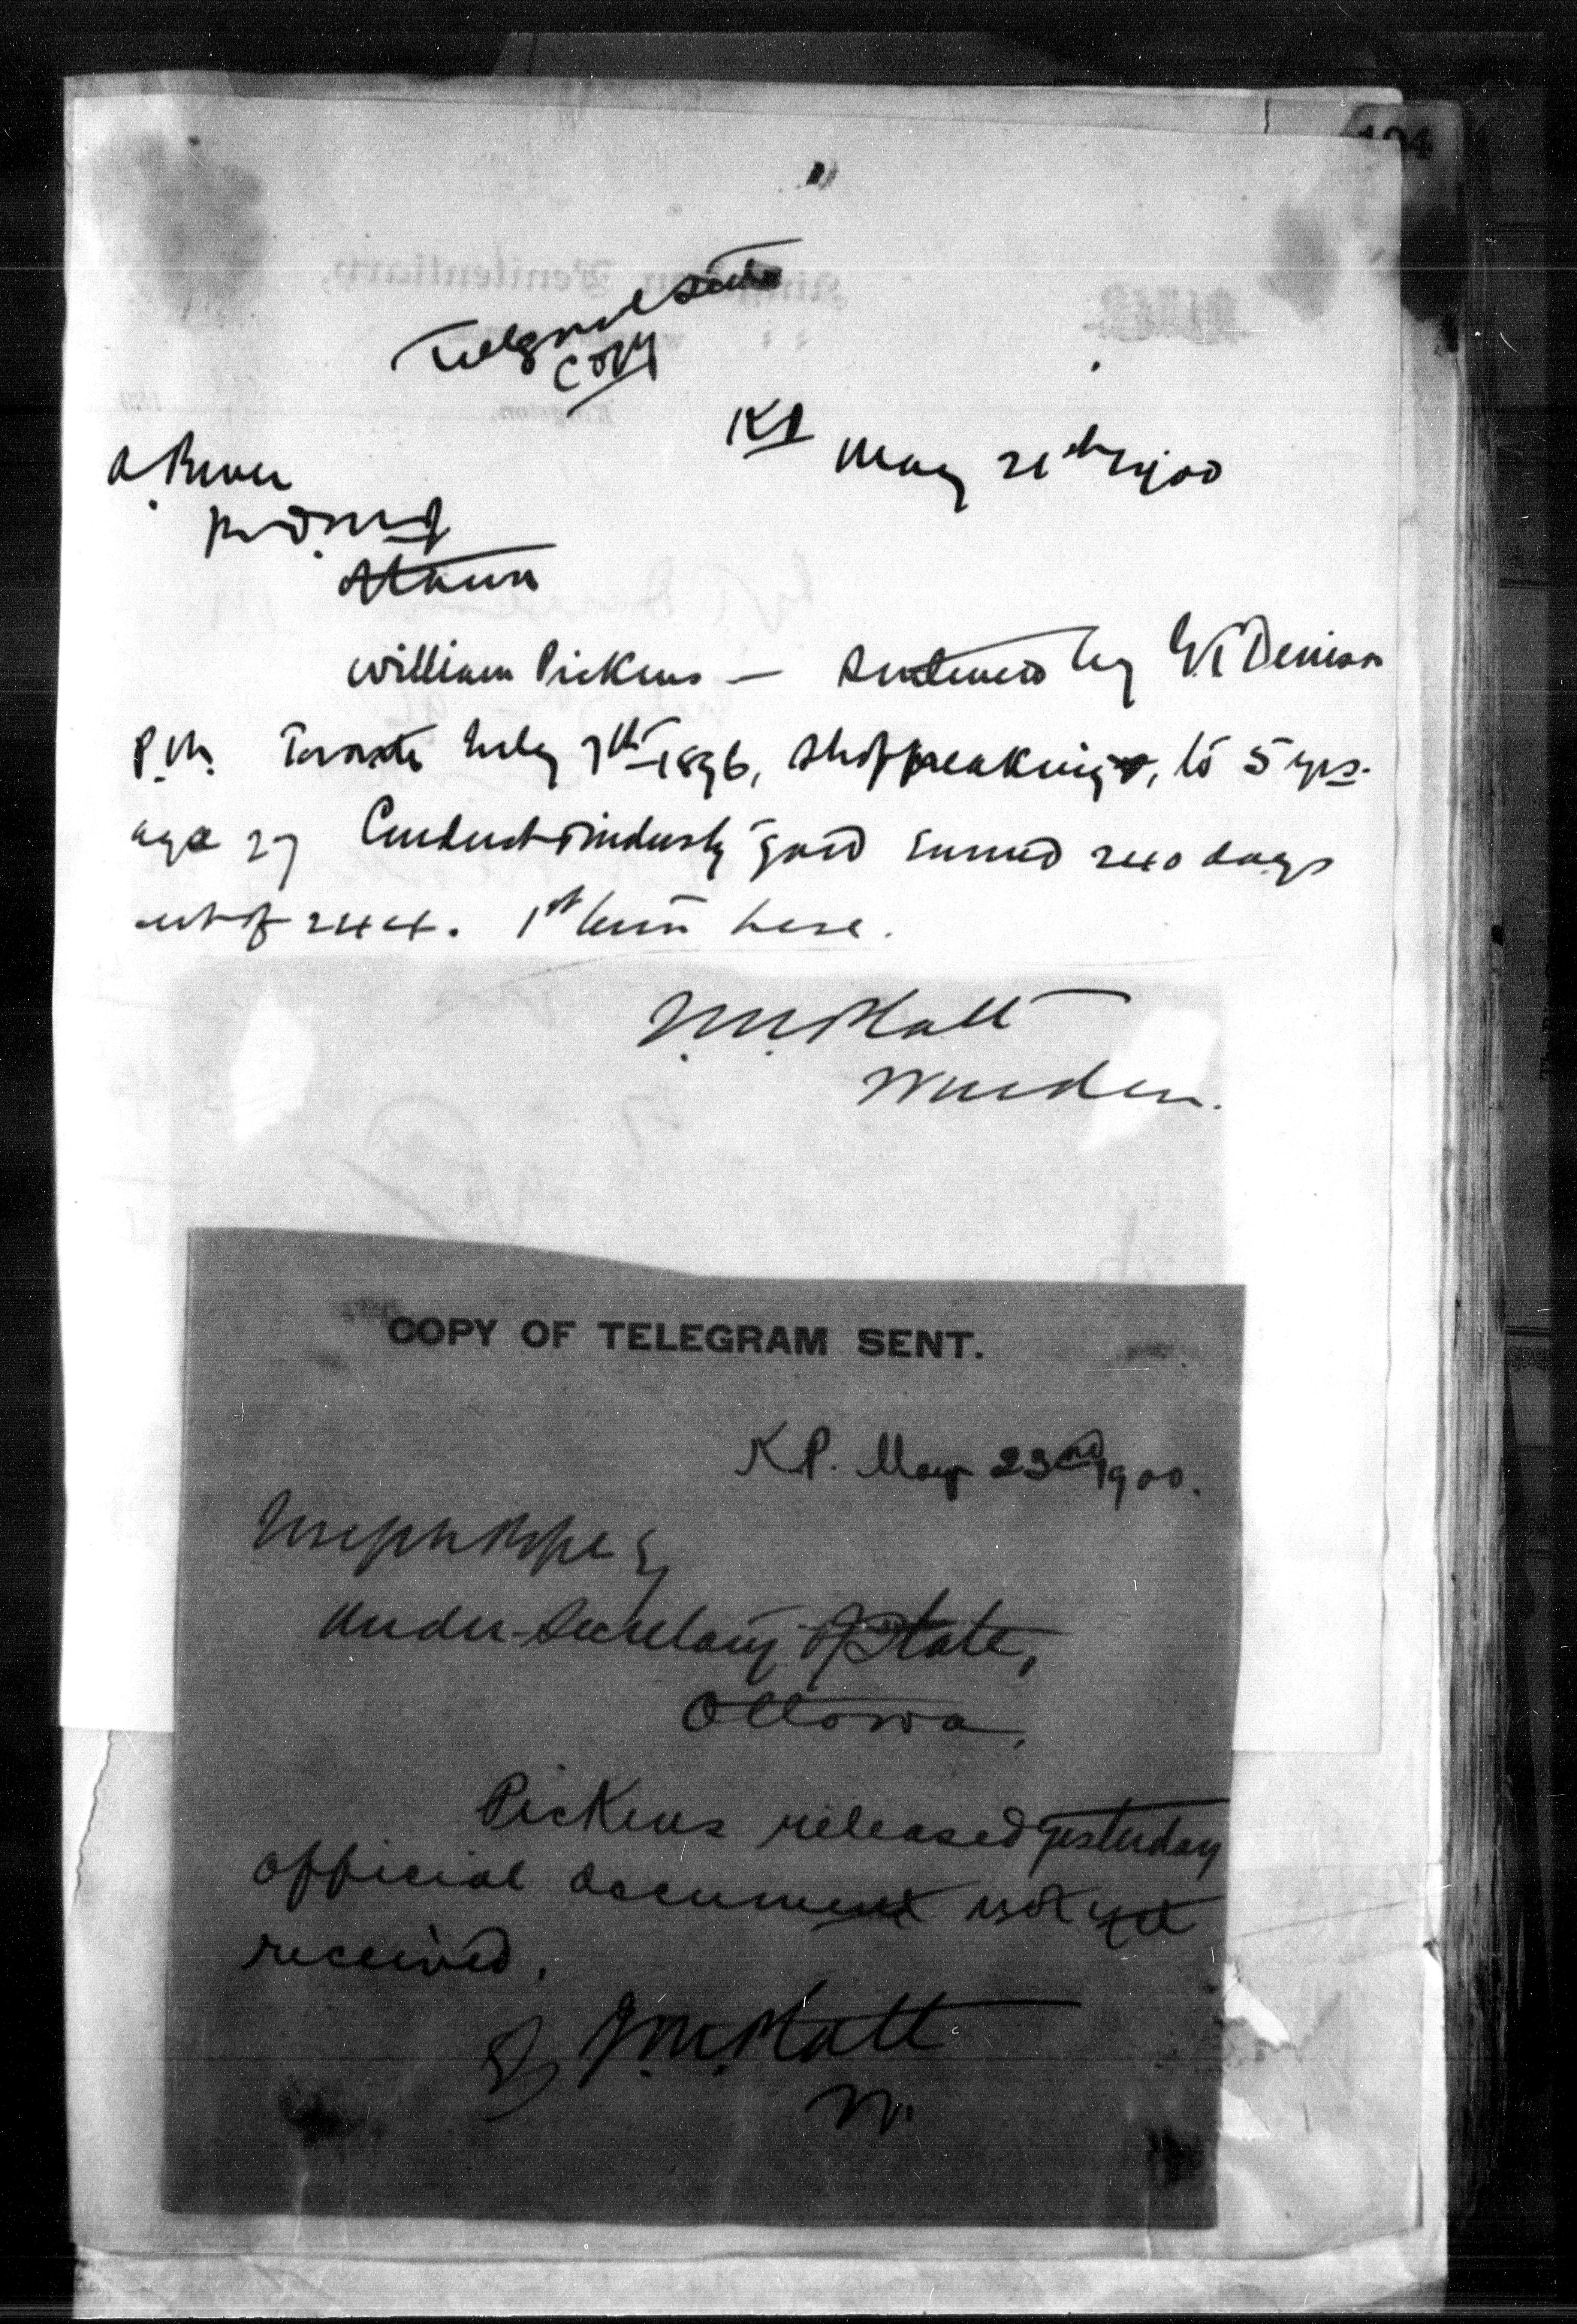 104
Telegram sent
Copy
KP May 21st 1900
A Power
Ottawa
William Pickens — Sentenced by G T Denison
P.M. Toronto July 7th 1896, shopbreaking, to 5 yrs.
age 27 Conduct & industry good earned 240 days
out of 244. 1st term here.
J.M. Platt
Warden.
COPY OF TELEGRAM SENT.
K.P. May 23rd 1900.
Joseph Pope Esq
Under-Secretary of State,
Ottawa,
Pickens released yesterday
official document not yet
received.
J.M. Platt
W.